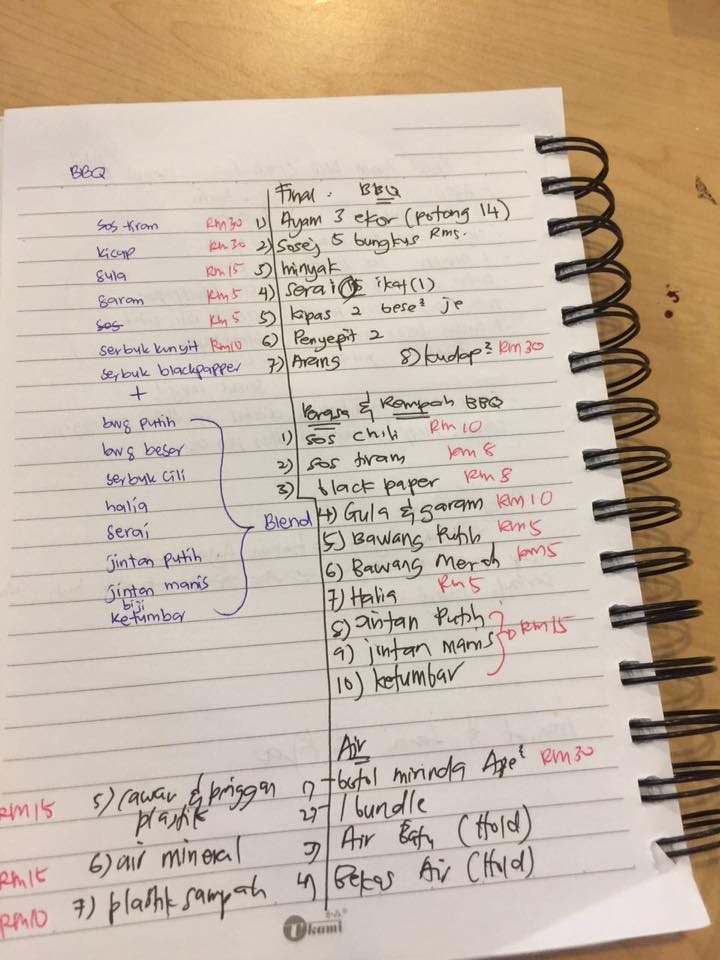 BBQ
sos tiram
kicap
gula
garam
sos
serbuk kunyit
serbuk blackpapper
+
bwg putih
bwg besar
serbuk cili
halia
serai
jintan putih
jintan manis
biji
ketumbar
Blend
Final . BBQ
RM30 1) Ayam 3 ekor (potong 14)
RM30 2) Sosej 5 bungkus RM5.
RM15 3) minyak
RM5 4) serai ikat (1)
RM5 5) kipas 2 bese² je
RM10 6) Penyepit 2
7) Arang 8) kudap² RM30
Perasa & Rempah BBQ
1) sos chili RM10
2) sos tiram RM8
3) black paper RM8
4) Gula & garam RM10
5) Bawang Putih RM5
6) Bawang Merah RM5
7) Halia RM5
8) Jintan Putih
9) jintan manis RM15
10) ketumbar
Air
1) botol mirinda Ape² RM30
2) 1 bundle
3) Air Batu (Hold)
4) Bekas Air (Hold)
RM15 5) cawan & pinggan
plastik
RM15 6) air mineral
RM10 7) plastik sampah
Ukami